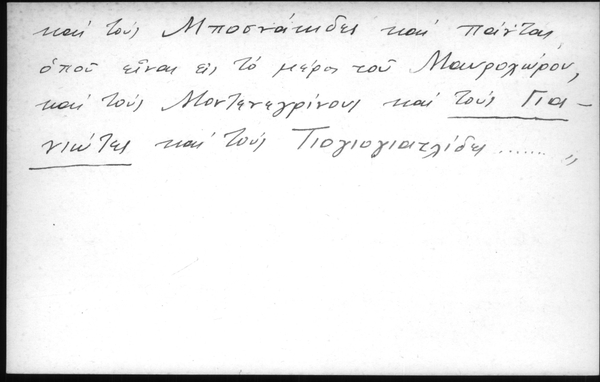 καί τούς Μποσνάκιδες καί πάντας
ὁποῦ εἶναι εἰς τό μέρος τοῦ Μαυροχώρου,
καί τούς Μοντενεγρίνους καί τούς Για-
νιώτες καί τούς Τιογιογιατλίδες ...... „